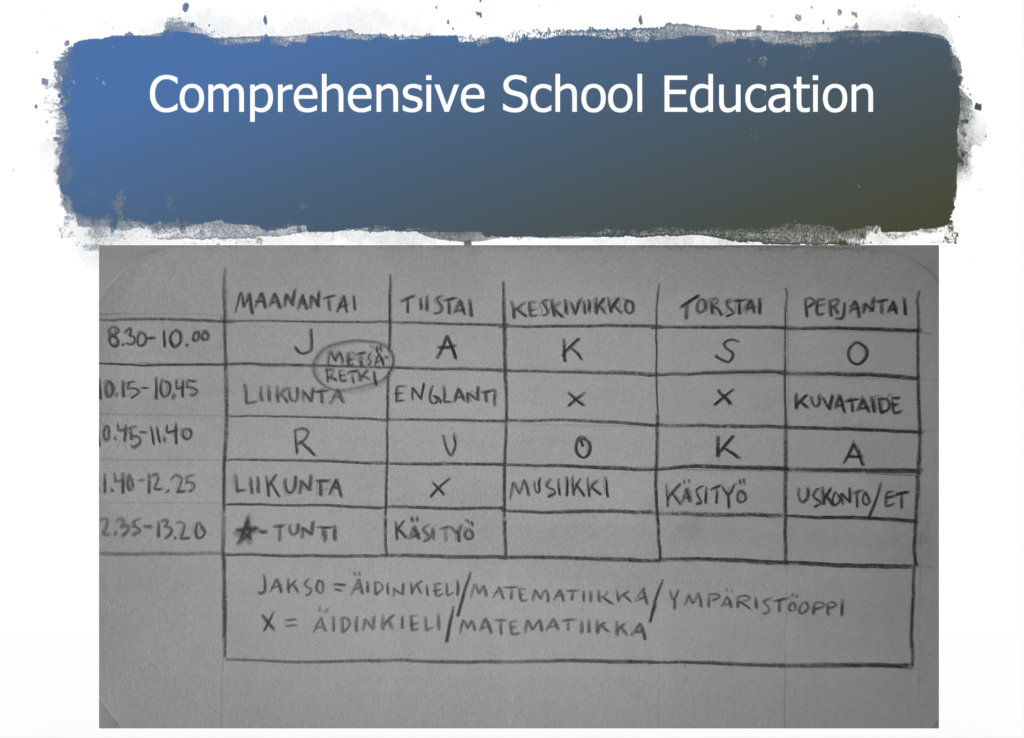 Comprehensive School Education
MAANANTAI TIISTAI KESKIVIIKKO TORSTAI PERJANTAI
8.30-10.00 J A K S O
METSÄ-
RETKI
10.15-10.45 LIIKUNTA ENGLANTI X X KUVATAIDE
0.45-11.40 R U O K A
1.40-12.25 LIIKUNTA X MUSIIKKI KÄSITYÖ USKONTO/ET
2.35-13.20 ★-TUNTI KÄSITYÖ
JAKSO = ÄIDINKIELI/MATEMATIIKKA/YMPÄRISTÖOPPI
X = ÄIDINKIELI/MATEMATIIKKA